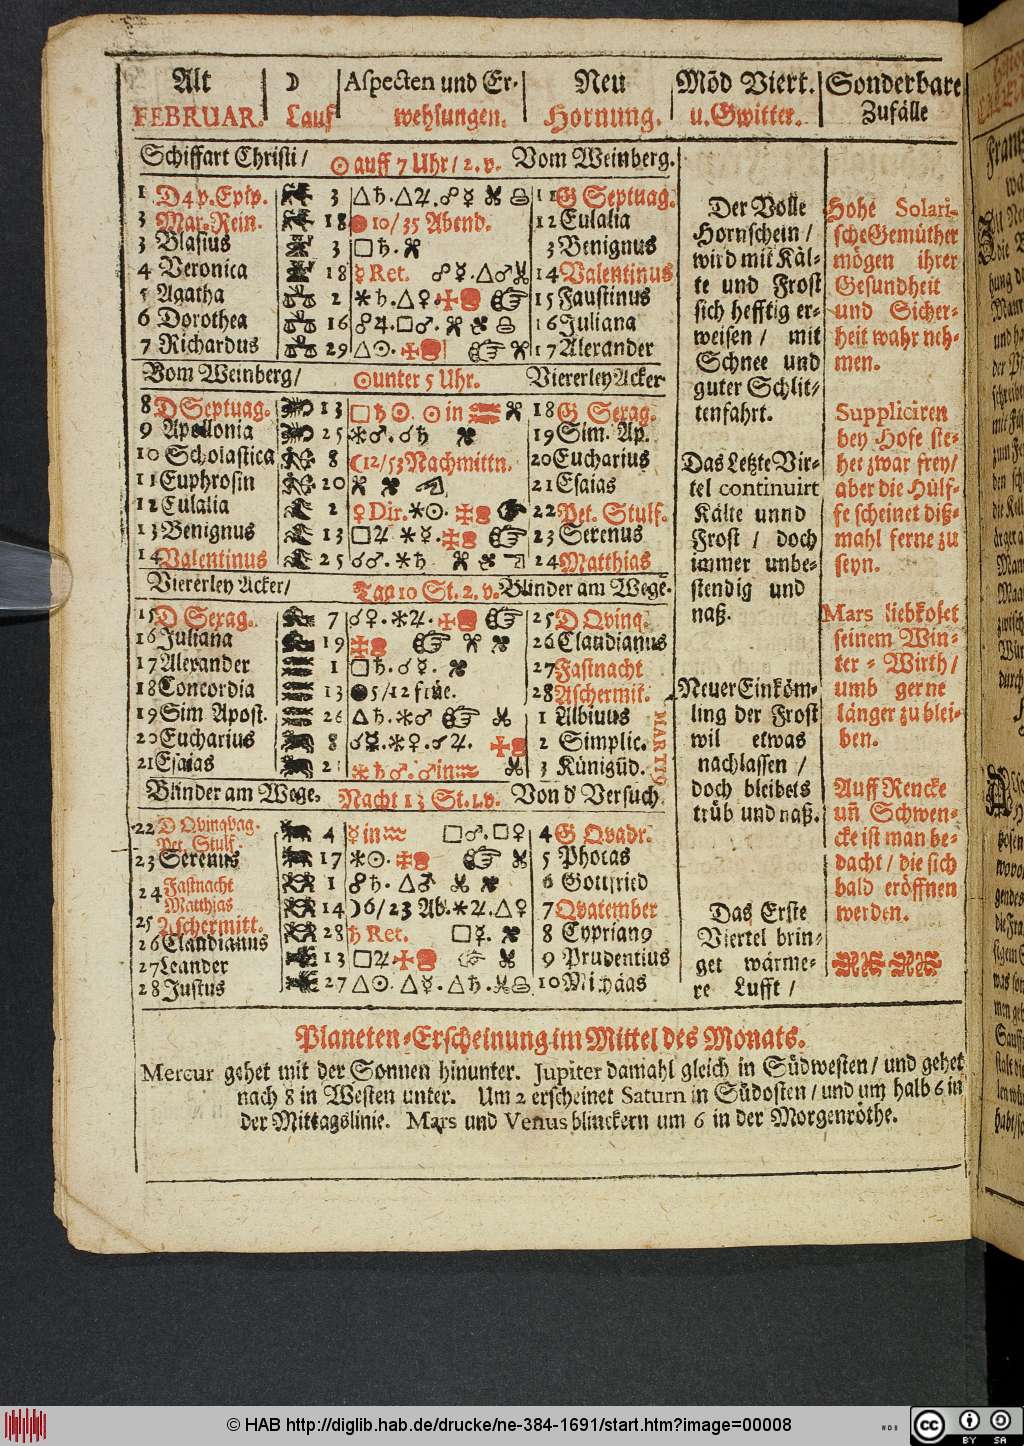 Alt ☽ Aspecten und Er- Neu Möd Viert. Sonderbare
FEBRUAR. Lauf wehlungen. Hornung. u. Gwitter. Zufälle
Schiffart Christi / ☉ auff 7 Uhr / 2. v. Vom Weinberg.
1 D 4 p. Epip. 3 △♄. △♃. ☍☿ 11 G Septuag.
3 Mar. Rein. 18 10/35 Abend. 12 Eulalia
3 Blasius 3 □♄. 3 Benignus
4 Veronica 18 ☿ Ret. ☍☿. △♂ 14 Valentinus
5 Agatha 2 ✶♄. △♀. 15 Faustinus
6 Dorothea 16 ☍♃. □♂. 16 Juliana
7 Richardus 29 △☉. 17 Alexander
Vom Weinberg / ☉ unter 5 Uhr. Viererley Acker
8 D Septuag. 13 □♄☉. ☉ in ♒ 18 G Sexag.
9 Apollonia 25 ✶♂. ☌♄ 19 Sim. Ap.
10 Scholastica 8 ☾12/53 Nachmittn. 20 Eucharius
11 Euphrosin 20 21 Esaias
12 Eulalia 2 ♀ Dir. ✶☉. 22 Pet. Stulf.
13 Benignus 13 □♃ ✶☿. 23 Serenus
14 Valentinus 25 ☌♂. ✶♄ 24 Matthias
Viererley Acker / Tag 10 St. 2. v. Blinder am Wege.
15 D Sexag. 7 ☌♀. ✶♃. 25 D Qvinq.
16 Juliana 19 26 Claudianus
17 Alexander 1 □♄. ☌☿. 27 Fastnacht
18 Concordia 13 5/12 früe. 28 Aschermit.
19 Sim Apost. 26 △♄. ✶♂ 1 Albinus
20 Eucharius 8 ☌☿. ✶♀. ☌♃. 2 Simplic.
21 Esaias 21 ✶♄♂. ♂ in ♒ 3 Künigüd.
MARTIO
Blinder am Wege, Nacht 13 St. 1. v. Von d' Versuch
22 D Qvinqvag. Pet. Stulf. 4 ☿ in ♒ □♂. □♀ 4 G Qvadr.
23 Serenus 17 ✶☉. 5 Photas
24 Fastnacht Matthias 1 ☍♄. △♂ 6 Gottfried
25 Aschermitt. 14 ☽6/23 Ab. ✶♃. △♀ 7 Qvatember
26 Claudianus 28 ♄ Ret. □☿. 8 Cyprian9
27 Leander 13 □♃ 9 Prudentius
28 Justus 27 △☉. △☿. △♄. 10 Michäas
Der Volle
Hornschein /
wird mit Käl-
te und Frost
sich hefftig er-
weisen / mit
Schnee und
guter Schlit-
tenfahrt.
Das Letzte Vir-
tel continuirt
Kälte unnd
Frost / doch
immer unbe-
stendig und
naß.
Neuer Einköm-
ling der Frost
wil etwas
nachlassen /
doch bleibets
trüb und naß.
Das Erste
Viertel brin-
get wärme-
re Lufft /
Hohe Solari-
sche Gemüther
mögen ihrer
Gesundheit
und Sicher-
heit wahr neh-
men.
Suppliciren
bey Hofe ste-
het zwar frey /
aber die Hülf-
fe scheinet diß-
mahl ferne zu
seyn.
Mars liebkoset
seinem Win-
ter - Wirth /
umb gerne
länger zu blei-
ben.
Auff Rencke
uñ Schwen-
cke ist man be-
dacht / die sich
bald eröffnen
werden.
Planeten-Erscheinung im Mittel des Monats.
Mercur gehet mit der Sonnen hinunter. Jupiter damahl gleich in Südwesten / und gehet
nach 8 in Westen unter. Um 2 erscheinet Saturn in Südosten / und um halb 6 in
der Mittagslinie. Mars und Venus blinckern um 6 in der Morgenröthe.
© HAB http://diglib.hab.de/drucke/ne-384-1691/start.htm?image=00008
WDB
CC BY SA